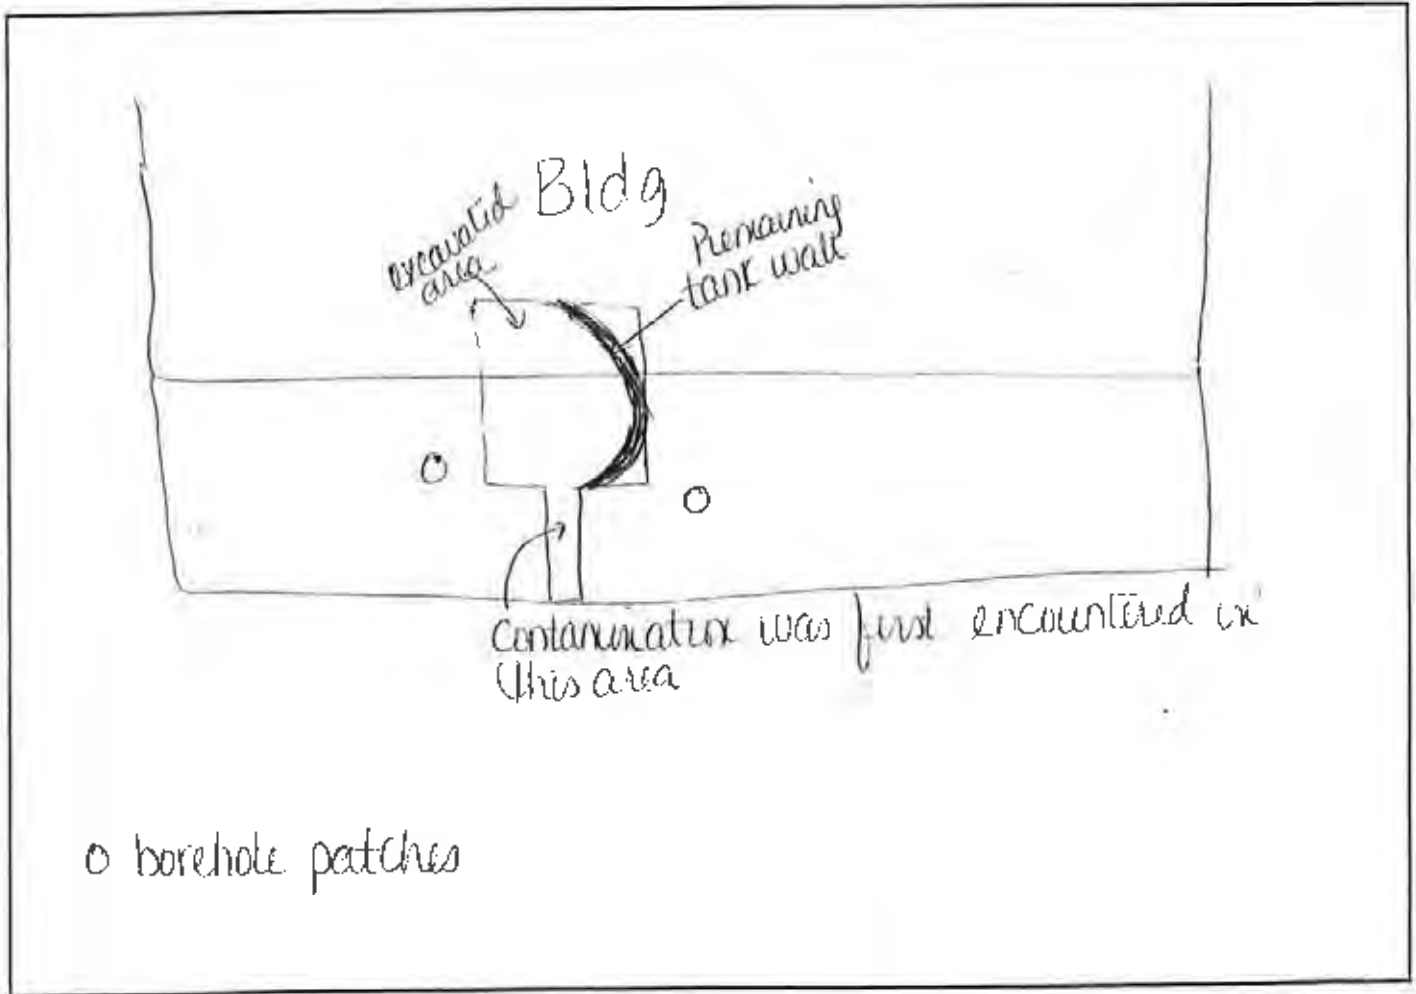 Bldg
excavated
area
Remaining
tank wall
Contamination was first encountered in
this area
o borehole patches